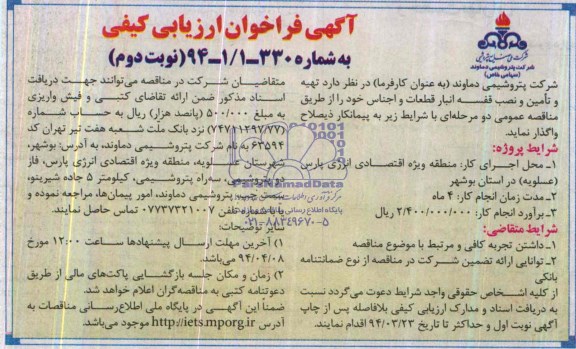 آگهی فراخوان ارزیابی کیفی
به شماره ۳۳۰-۱/۱-۹۴ (نوبت دوم)
شرکت پتروشیمی دماوند
(سهامی خاص)
شرکت پتروشیمی دماوند (به عنوان کارفرما) در نظر دارد تهیه
و تأمین و نصب قفسه انبار قطعات و اجناس خود را از طریق
مناقصه عمومی دو مرحله‌ای با شرایط زیر به پیمانکار ذیصلاح
واگذار نماید.
شرایط پروژه:
۱ـ محل اجرای کار: منطقه ویژه اقتصادی انرژی پارس
(عسلویه) در استان بوشهر
۲ـ مدت زمان انجام کار: ۴ ماه
۳ـ برآورد انجام کار: ۲/۴۰۰/۰۰۰/۰۰۰ ریال
شرایط متقاضی:
۱ـ داشتن تجربه کافی و مرتبط با موضوع مناقصه
۲ـ توانایی ارائه تضمین شرکت در مناقصه از نوع ضمانتنامه
بانکی
از کلیه اشخاص حقوقی واجد شرایط دعوت می‌گردد نسبت
به دریافت اسناد و مدارک ارزیابی کیفی بلافاصله پس از چاپ
آگهی نوبت اول و حداکثر تا تاریخ ۹۴/۰۳/۲۳ اقدام نمایند.
متقاضیان شرکت در مناقصه می‌توانند جهت دریافت
اسناد مذکور ضمن ارائه تقاضای کتبی و فیش واریزی
به مبلغ ۵۰۰/۰۰۰ (پانصد هزار) ریال به حساب شماره
(۷۴۷۰۱۲۹۷/۷۷) نزد بانک ملت شعبه هفت تیر تهران کد
۶۳۵۹۴ به نام شرکت پتروشیمی دماوند، به آدرس: بوشهر،
شهرستان عسلویه، منطقه ویژه اقتصادی انرژی پارس، فاز
دو پتروشیمی، سه‌راه پتروشیمی، کیلومتر ۵ جاده شیرینو،
سمت چپ، پتروشیمی دماوند، امور پیمان‌ها، مراجعه نموده و
یا با شماره تلفن ۰۷۷۳۷۳۲۱۰۰۷ تماس حاصل نمایند.
سایر توضیحات:
۱) آخرین مهلت ارسال پیشنهادها ساعت ۱۲:۰۰ مورخ
۹۴/۰۴/۰۸ می‌باشد.
۲) زمان و مکان جلسه بازگشایی پاکت‌های مالی از طریق
دعوتنامه کتبی به مناقصه‌گران اعلام خواهد شد.
ضمناً این آگهی در پایگاه ملی اطلاع‌رسانی مناقصات به
آدرس http://iets.mporg.ir موجود می‌باشد.
ParsNamadData
۰۲۱-۸۸۳۴۹۶۷۰-۵